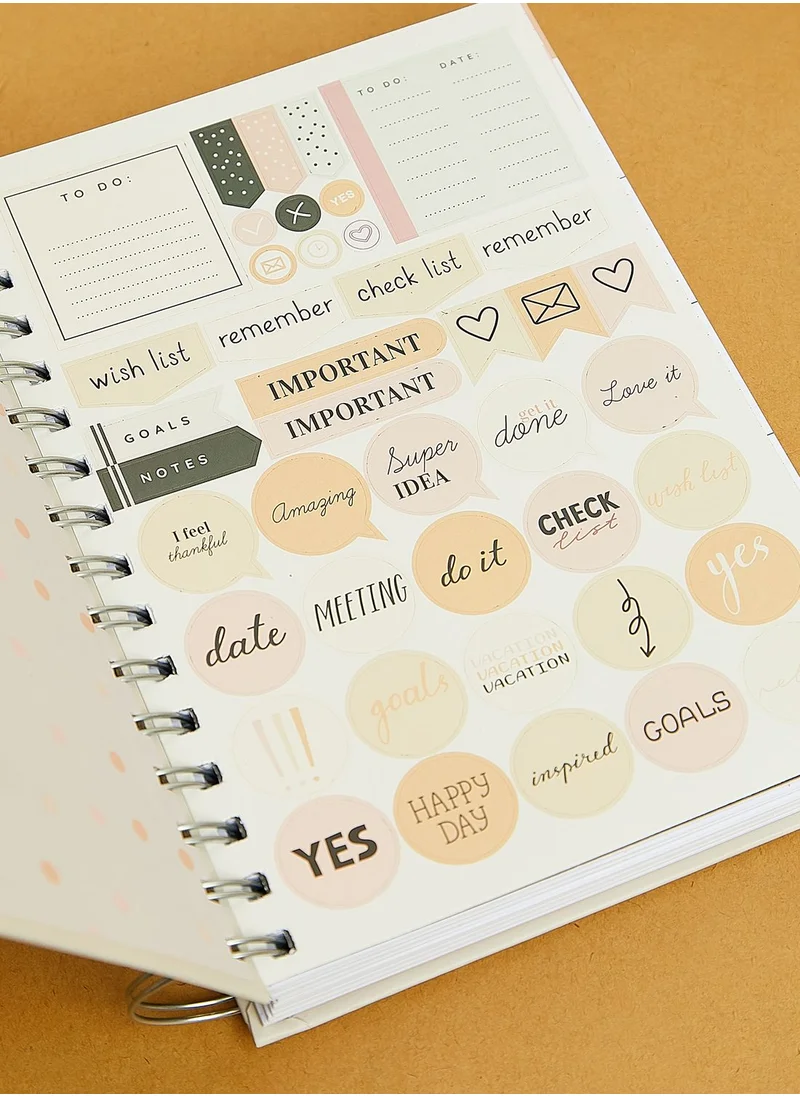 TO DO:
TO DO:
DATE:
YES
wish list
remember
check list
remember
IMPORTANT
IMPORTANT
GOALS
NOTES
I feel
thankful
Amazing
Super
IDEA
get it
done
Love it
date
MEETING
do it
CHECK
list
wish list
goals
VACATION
VACATION
VACATION
yes
!!!
YES
HAPPY
DAY
inspired
GOALS